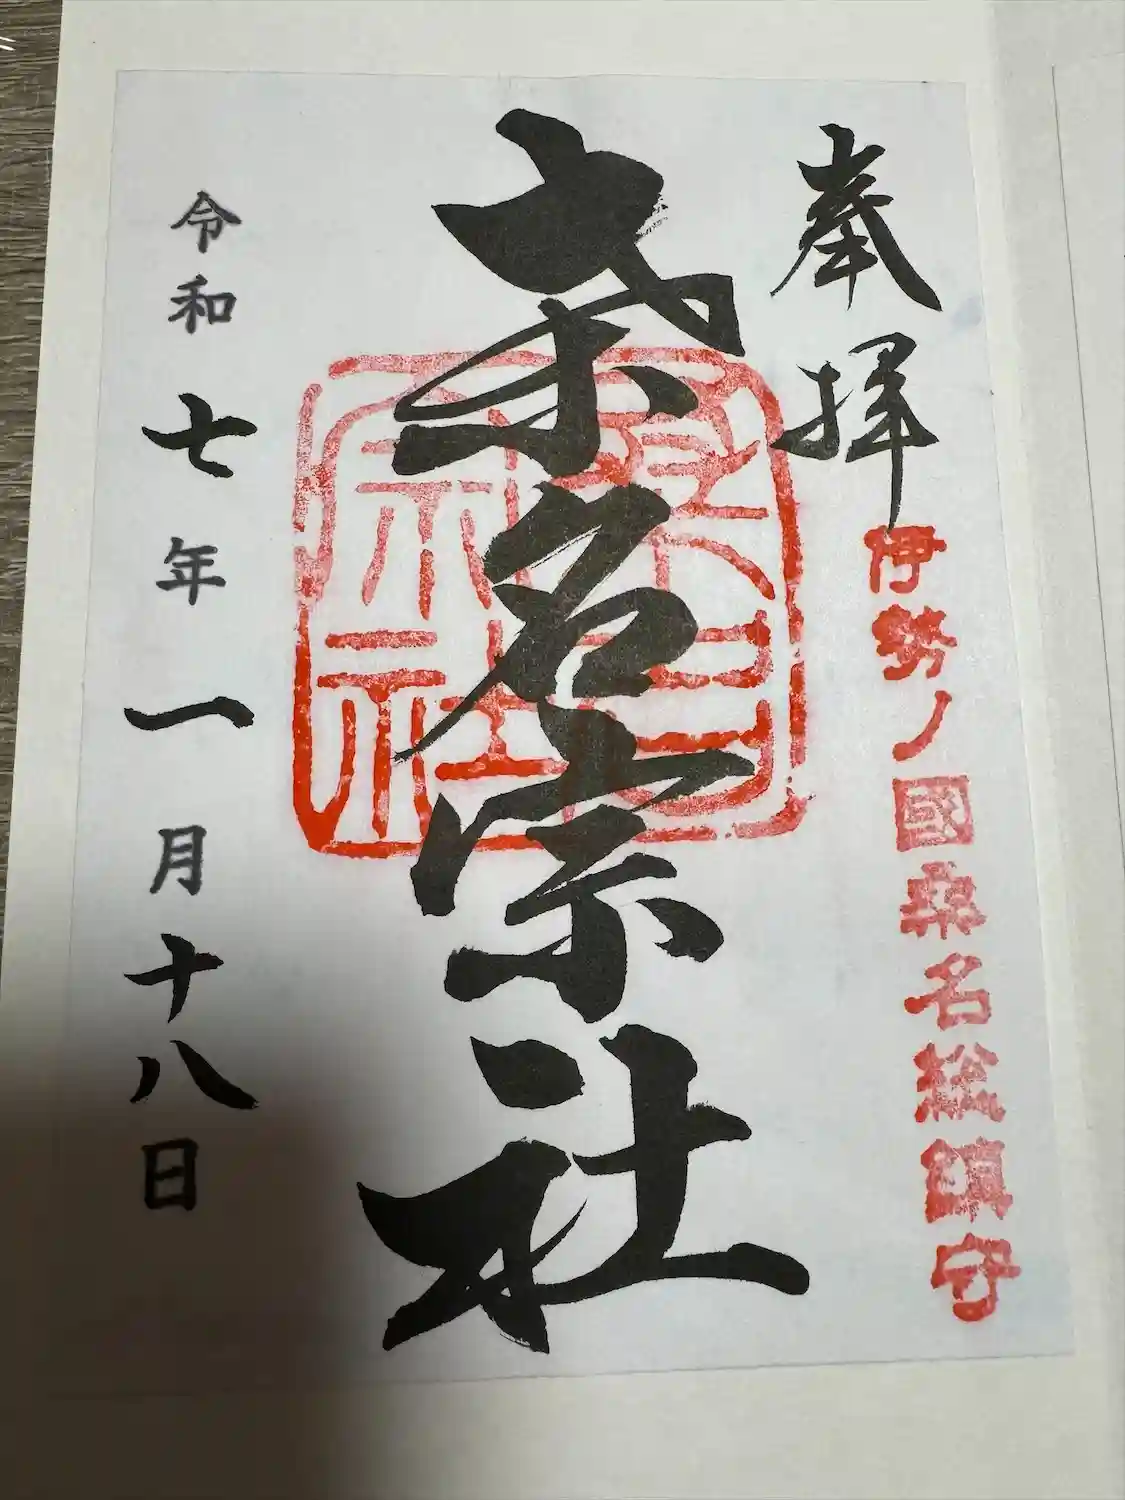 奉拝
伊勢ノ國桑名総鎮守
桑名宗社
桑名宗社
令和七年一月十八日